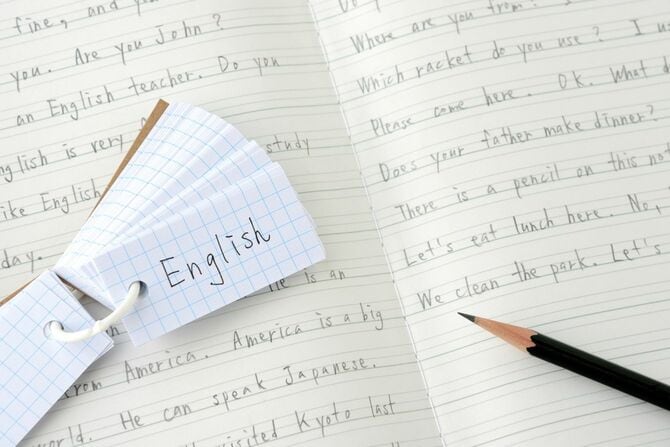 fine, and you
you. Are you John?
an English teacher. Do you
English is very
study
like English
day.
He is an
from America. America is a big
world. He can speak Japanese.
visited Kyoto last
English
Do you
Where are you from?
Which racket do you use? I
Please come here. OK. What
Does your father make dinner?
There is a pencil on this
Let's eat lunch here. No,
We clean the park. Let's